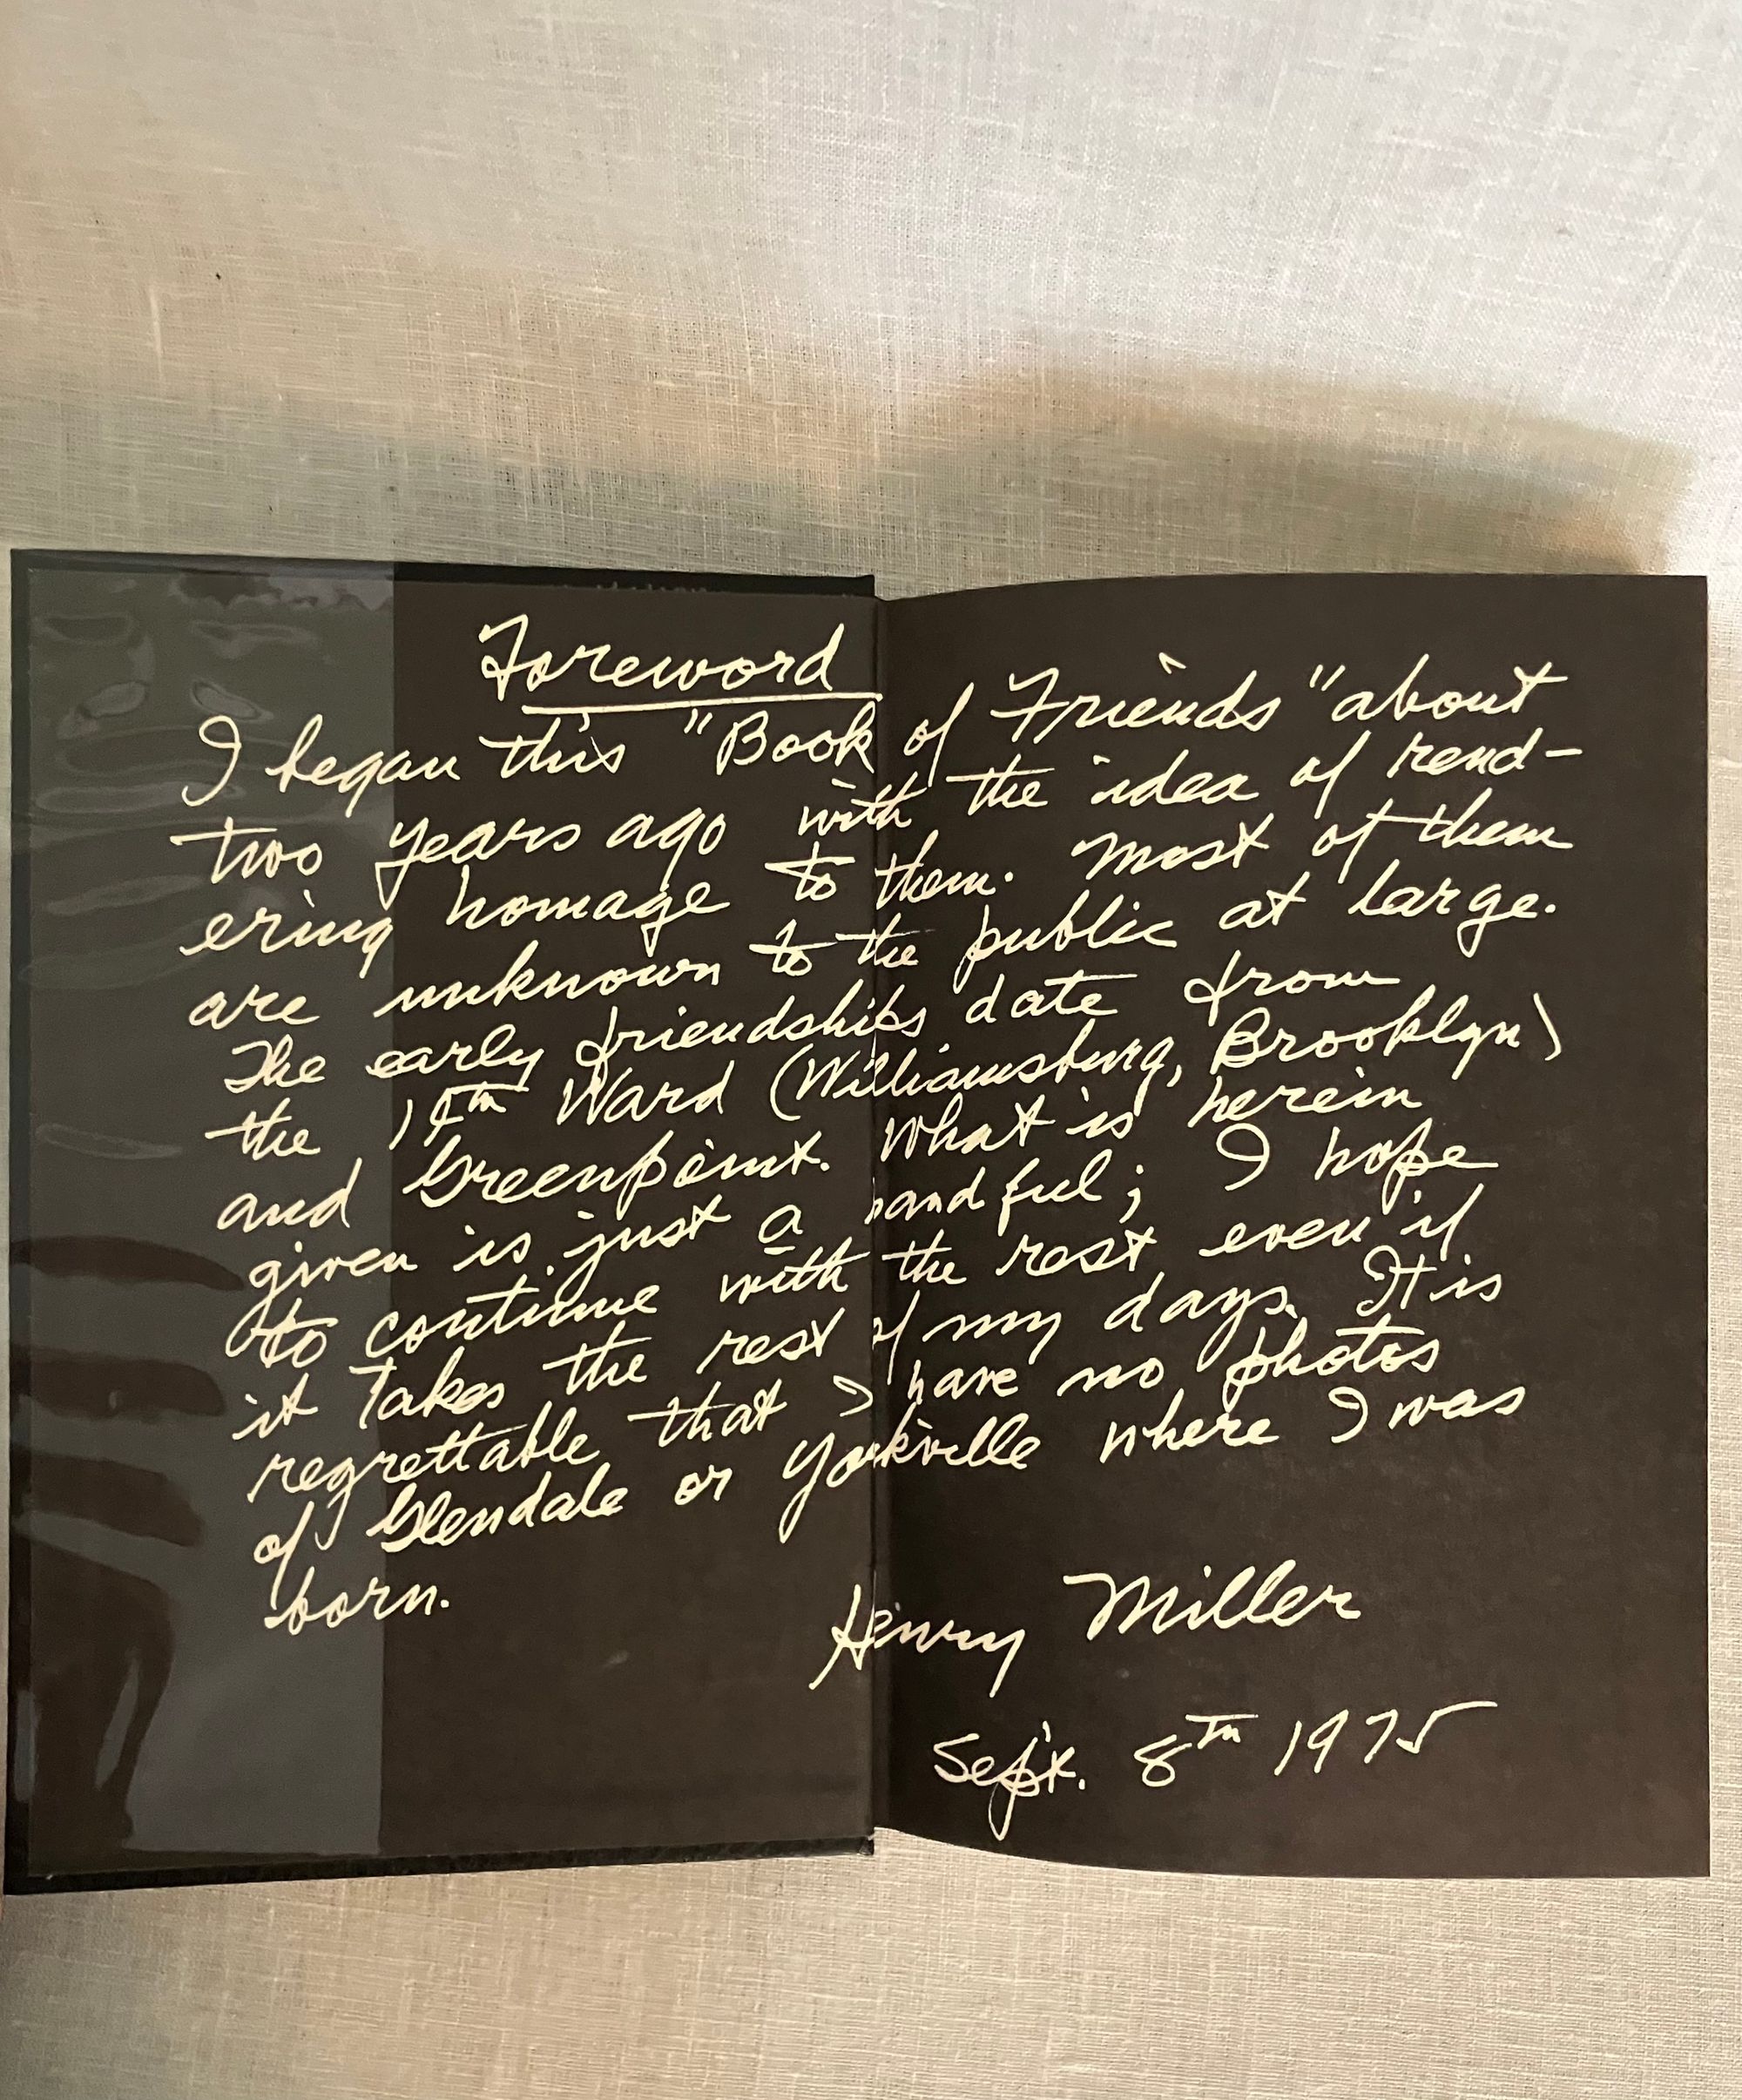 Foreword
I began this "Book of Friends" about
two years ago with the idea of rend-
ering homage to them. Most of them
are unknown to the public at large.
The early friendships date from
the 14th Ward (Williamsburg, Brooklyn)
and Greenpoint. What is herein
given is just a handful; I hope
to continue with the rest even if
it takes the rest of my days. It is
regrettable that I have no photos
of Glendale or Yorkville where I was
born.
Henry Miller
Sept. 8th 1975